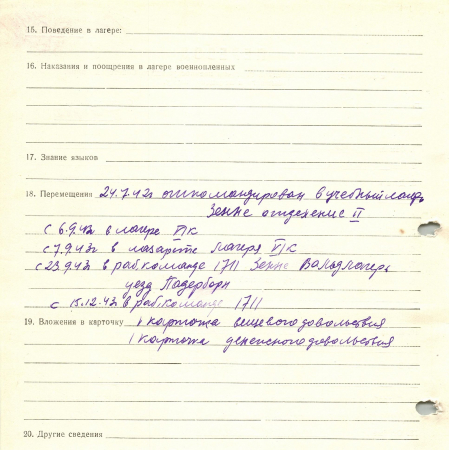 15. Поведение в лагере:
16. Наказания и поощрения в лагере военнопленных
17. Знание языков
18. Перемещения 24.7.42г откомандирован в учебный лагерь
Зенне отделение II
с 6.9.42 в лагере VI к
с 7.9.43г в лазарете лагеря VI к
с 23.9.43 в раб.команде 1711 Зенне Вальдлагерь
уезд Падерборн
с 15.12.43 в раб.команде 1711
19. Вложения в карточку 1 карточка вещевого довольствия
1 карточка денежного довольствия
20. Другие сведения